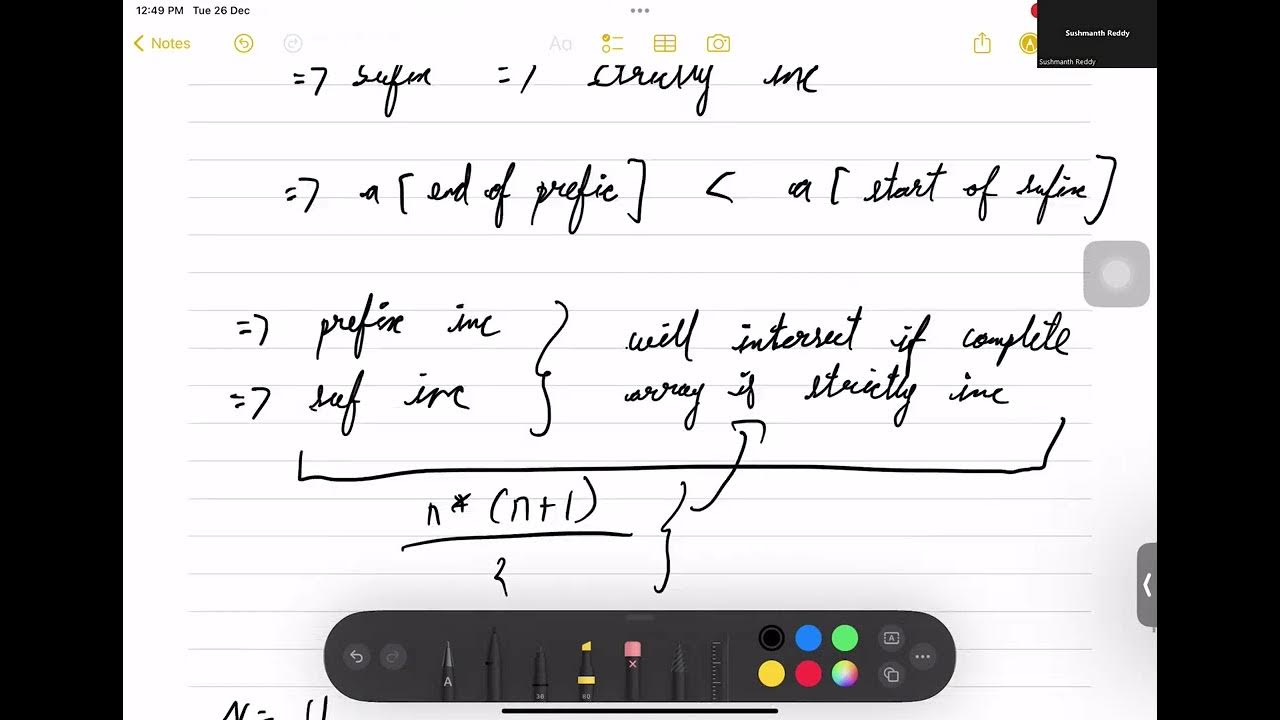 12:49 PM Tue 26 Dec
Sushmanth Reddy
Notes
Aa
Sushmanth Reddy
=> sufix => strictly inc
=> a [ end of prefic ] < a [ start of sufix ]
=> prefix inc } will intersect if complete
=> suf inc } array is strictly inc
n* (n+1) }
2
A
36
80
A